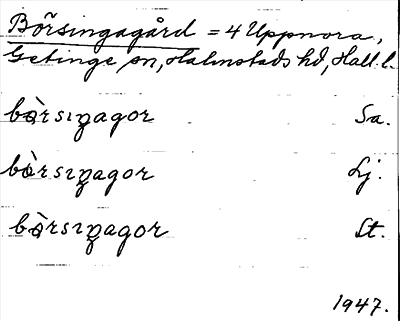 Börsingagård = 4 Uppnora,
Getinge sn, Halmstads hd, Hall. l.
bòrsıŋagor Sa.
bòrsıŋagor Lj.
bòrsıŋagor St.
1947.